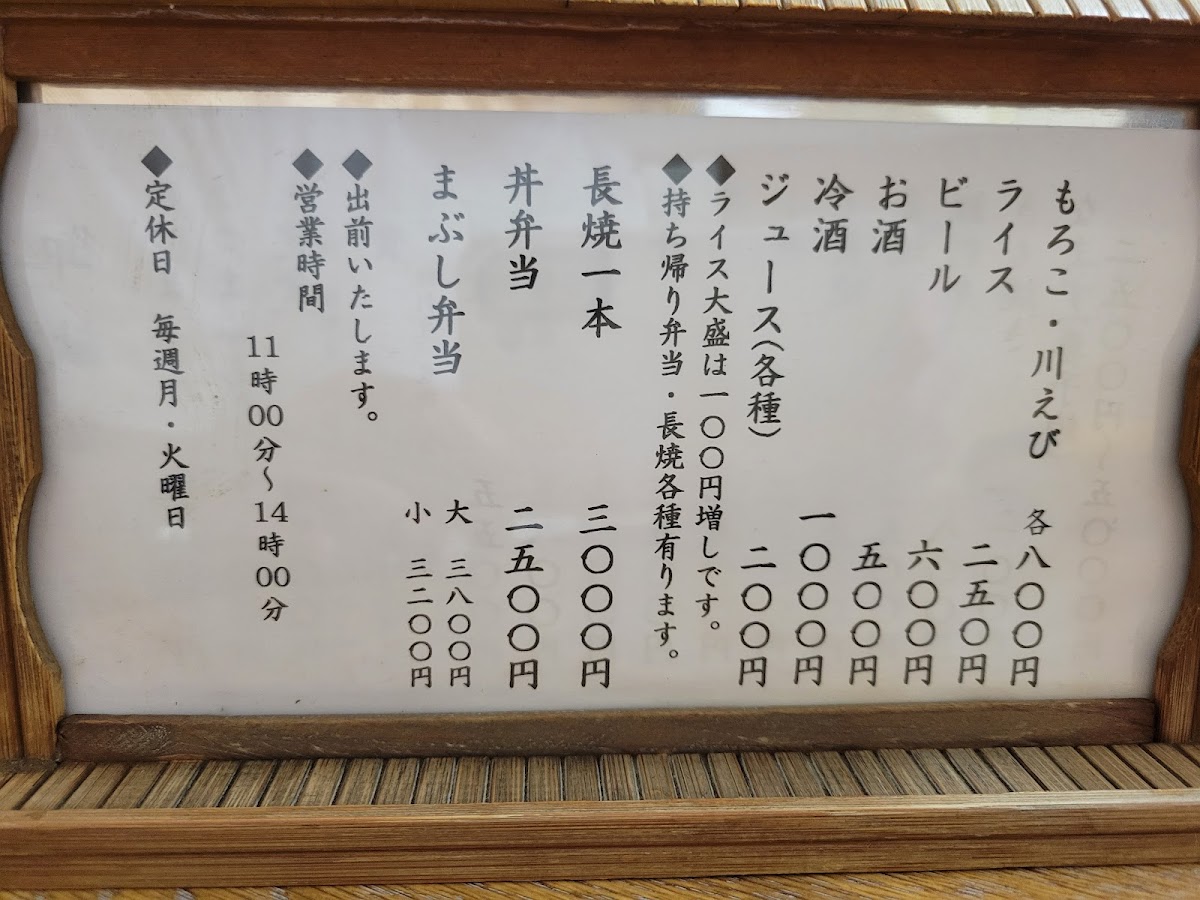 もろこ・川えび 各八〇〇円
ライス 二五〇円
ビール 六〇〇円
お酒 五〇〇円
冷酒 一〇〇〇円
ジュース(各種) 二〇〇円
◆ライス大盛は一〇〇円増しです。
◆持ち帰り弁当・長焼各種有ります。
長焼一本 三〇〇〇円
丼弁当 二五〇〇円
まぶし弁当 大 三八〇〇円
小 三二〇〇円
◆出前いたします。
◆営業時間
11時00分〜14時00分
◆定休日 毎週月・火曜日